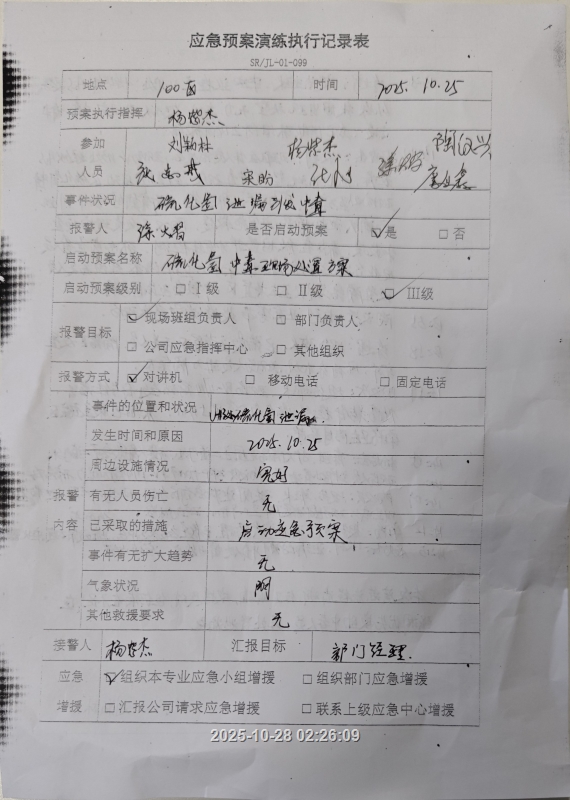 应急预案演练执行记录表
SR/JL-01-099
地点 100 时间 2025. 10. 25
预案执行指挥 杨荣杰
参加 刘颖林 杨荣杰
人员
事件状况 硫化氢泄漏引发中毒
报警人 是否启动预案 ☑是 □否
启动预案名称 硫化氢中毒现场处置方案
启动预案级别 □Ⅰ级 □Ⅱ级 ☑Ⅲ级
报警目标 ☑现场班组负责人 □部门负责人
□公司应急指挥中心 □其他组织
报警方式 ☑对讲机 □移动电话 □固定电话
事件的位置和状况 硫化氢泄漏
发生时间和原因 2025. 10. 25
周边设施情况 完好
报警 有无人员伤亡 无
内容 已采取的措施 启动应急预案
事件有无扩大趋势 无
气象状况 阴
其他救援要求 无
接警人 杨荣杰 汇报目标 部门经理.
应急 ☑组织本专业应急小组增援 □组织部门应急增援
增援 □汇报公司请求应急增援 □联系上级应急中心增援
2025-10-28 02:26:09